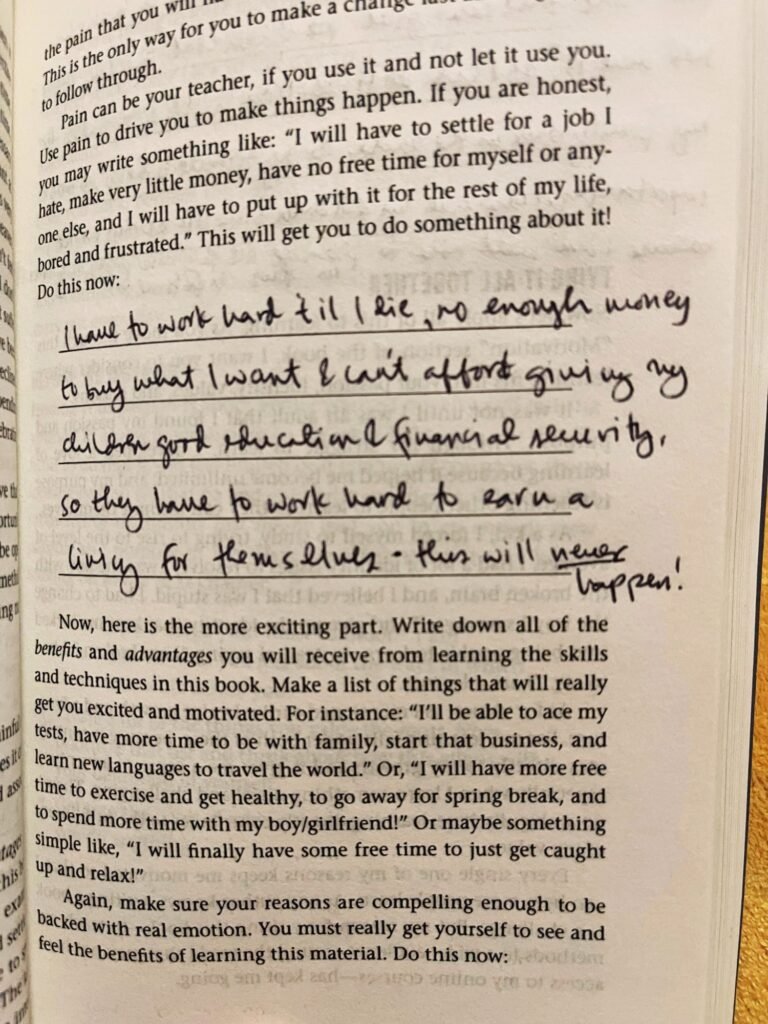 the pain that you will
This is the only way for you to make a change
to follow through.
Pain can be your teacher, if you use it and not let it use you.
Use pain to drive you to make things happen. If you are honest,
you may write something like: “I will have to settle for a job I
hate, make very little money, have no free time for myself or any-
one else, and I will have to put up with it for the rest of my life,
bored and frustrated.” This will get you to do something about it!
Do this now:
I have to work hard 'til I die, no enough money
to buy what I want & can't afford giving my
children good education & financial security,
so they have to work hard to earn a
living for themselves - this will never
happen!
Now, here is the more exciting part. Write down all of the
benefits and advantages you will receive from learning the skills
and techniques in this book. Make a list of things that will really
get you excited and motivated. For instance: “I’ll be able to ace my
tests, have more time to be with family, start that business, and
learn new languages to travel the world.” Or, “I will have more free
time to exercise and get healthy, to go away for spring break, and
to spend more time with my boy/girlfriend!” Or maybe something
simple like, “I will finally have some free time to just get caught
up and relax!”
Again, make sure your reasons are compelling enough to be
backed with real emotion. You must really get yourself to see and
feel the benefits of learning this material. Do this now: